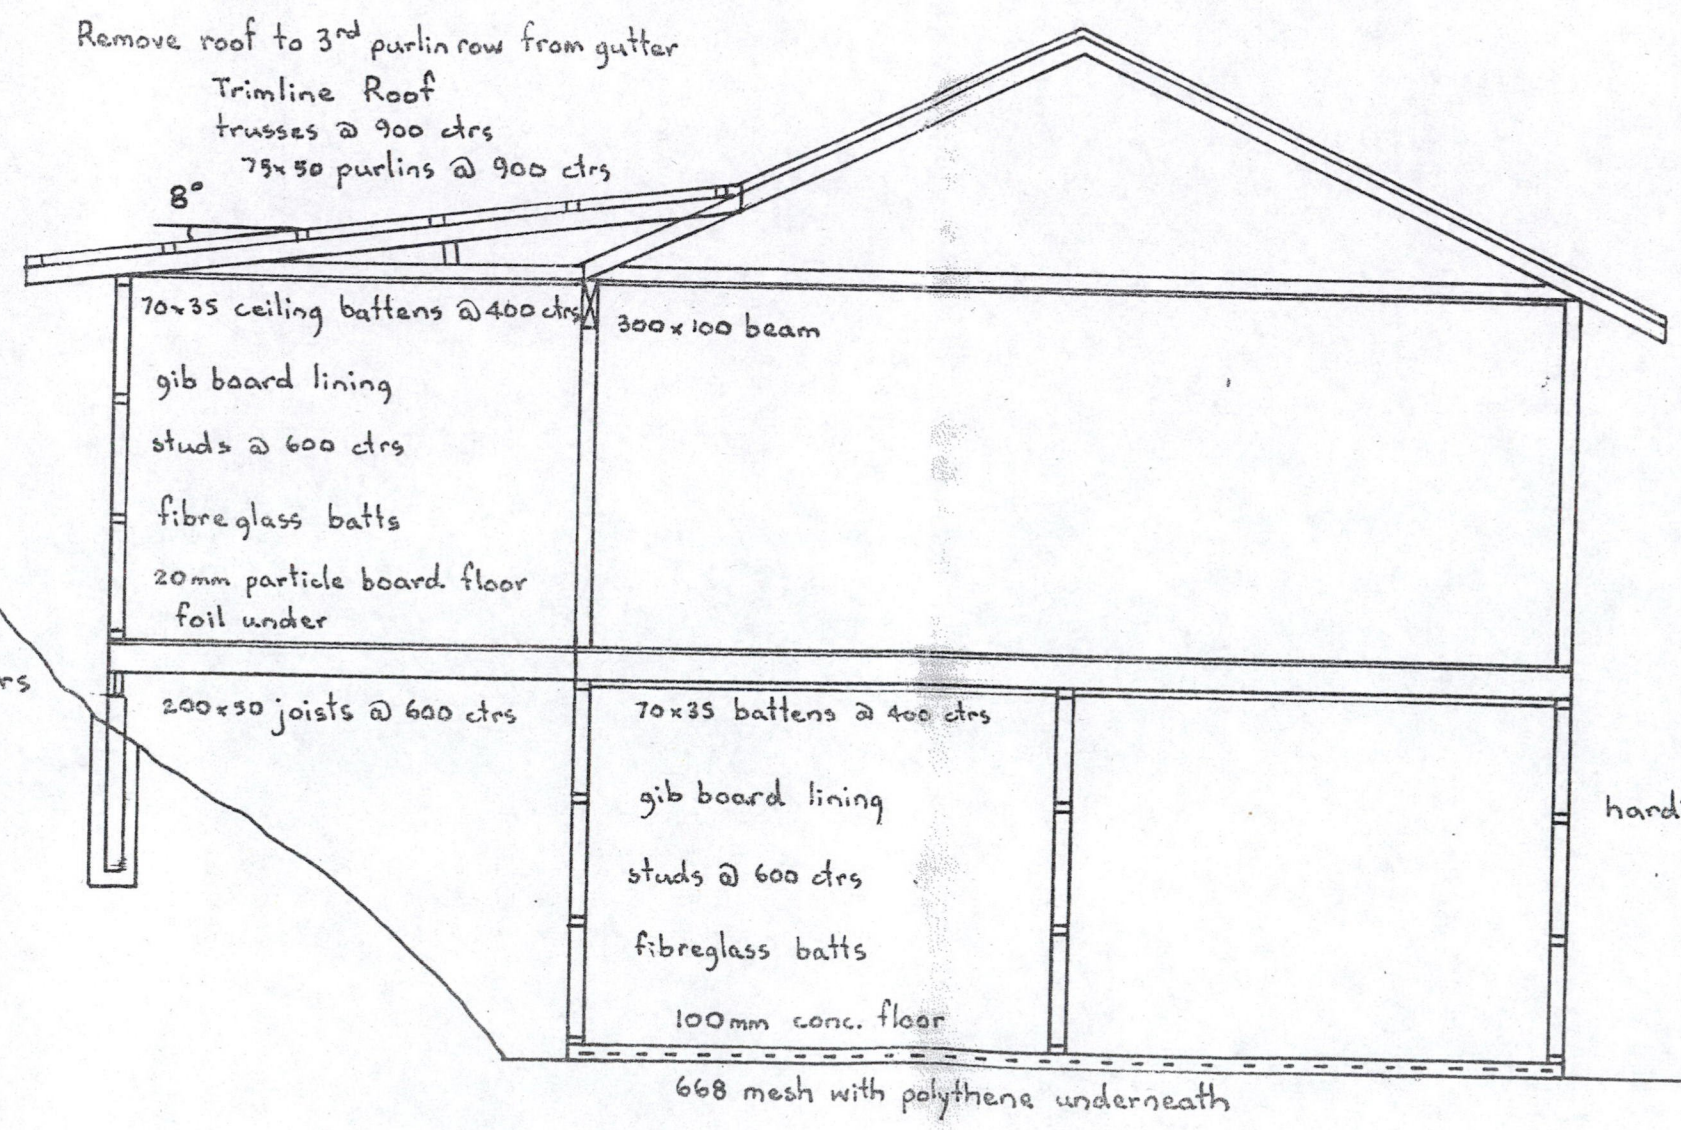 Remove roof to 3rd purlin row from gutter
Trimline Roof
trusses @ 900 ctrs
75x50 purlins @ 900 ctrs
8°
70x35 ceiling battens @ 400 ctrs
300x100 beam
gib board lining
studs @ 600 ctrs
fibreglass batts
20mm particle board floor
foil under
rs
200x50 joists @ 600 ctrs
70x35 battens @ 400 ctrs
gib board lining
hardi
studs @ 600 ctrs
fibreglass batts
100mm conc. floor
668 mesh with polythene underneath